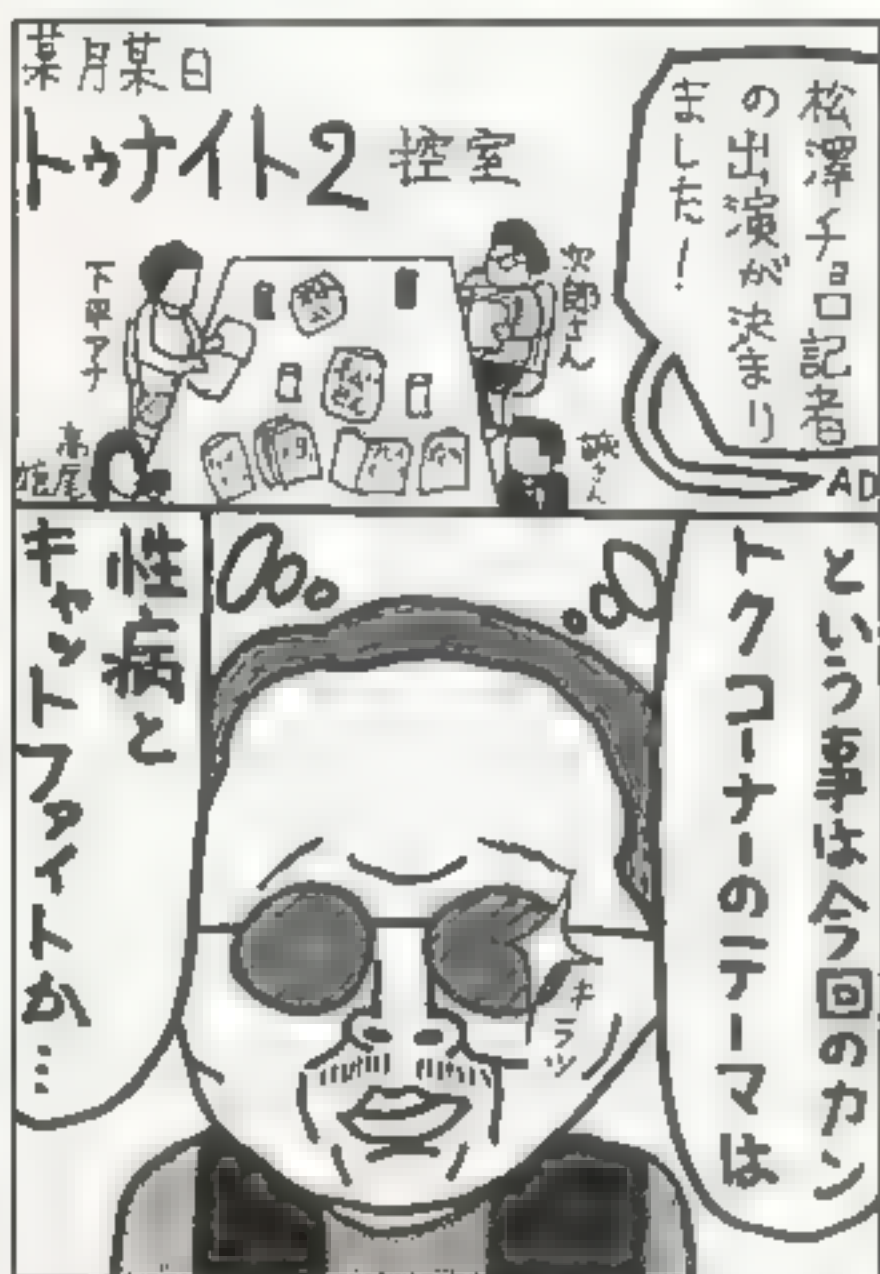 葉月某日
トゥナイト2 控室
松澤チョロ記者
の出演が決まり
ました!
AD
次郎さん
高尾
という事は今回のカン
トクコーナーのテーマは
キラッ
性病と
キャットファイトか…